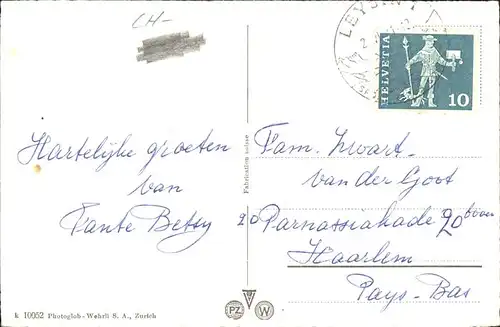 CH-
LEYSIN
HELVETIA
10
Hartelijke groeten
van
Tante Betsy
Fabrication suisse
Fam. Zwart-
van der Goot
Parnassiakade 20 boven
Haarlem
Pays-Bas
k 10052 Photoglob-Wehrli S. A., Zürich
PZ W